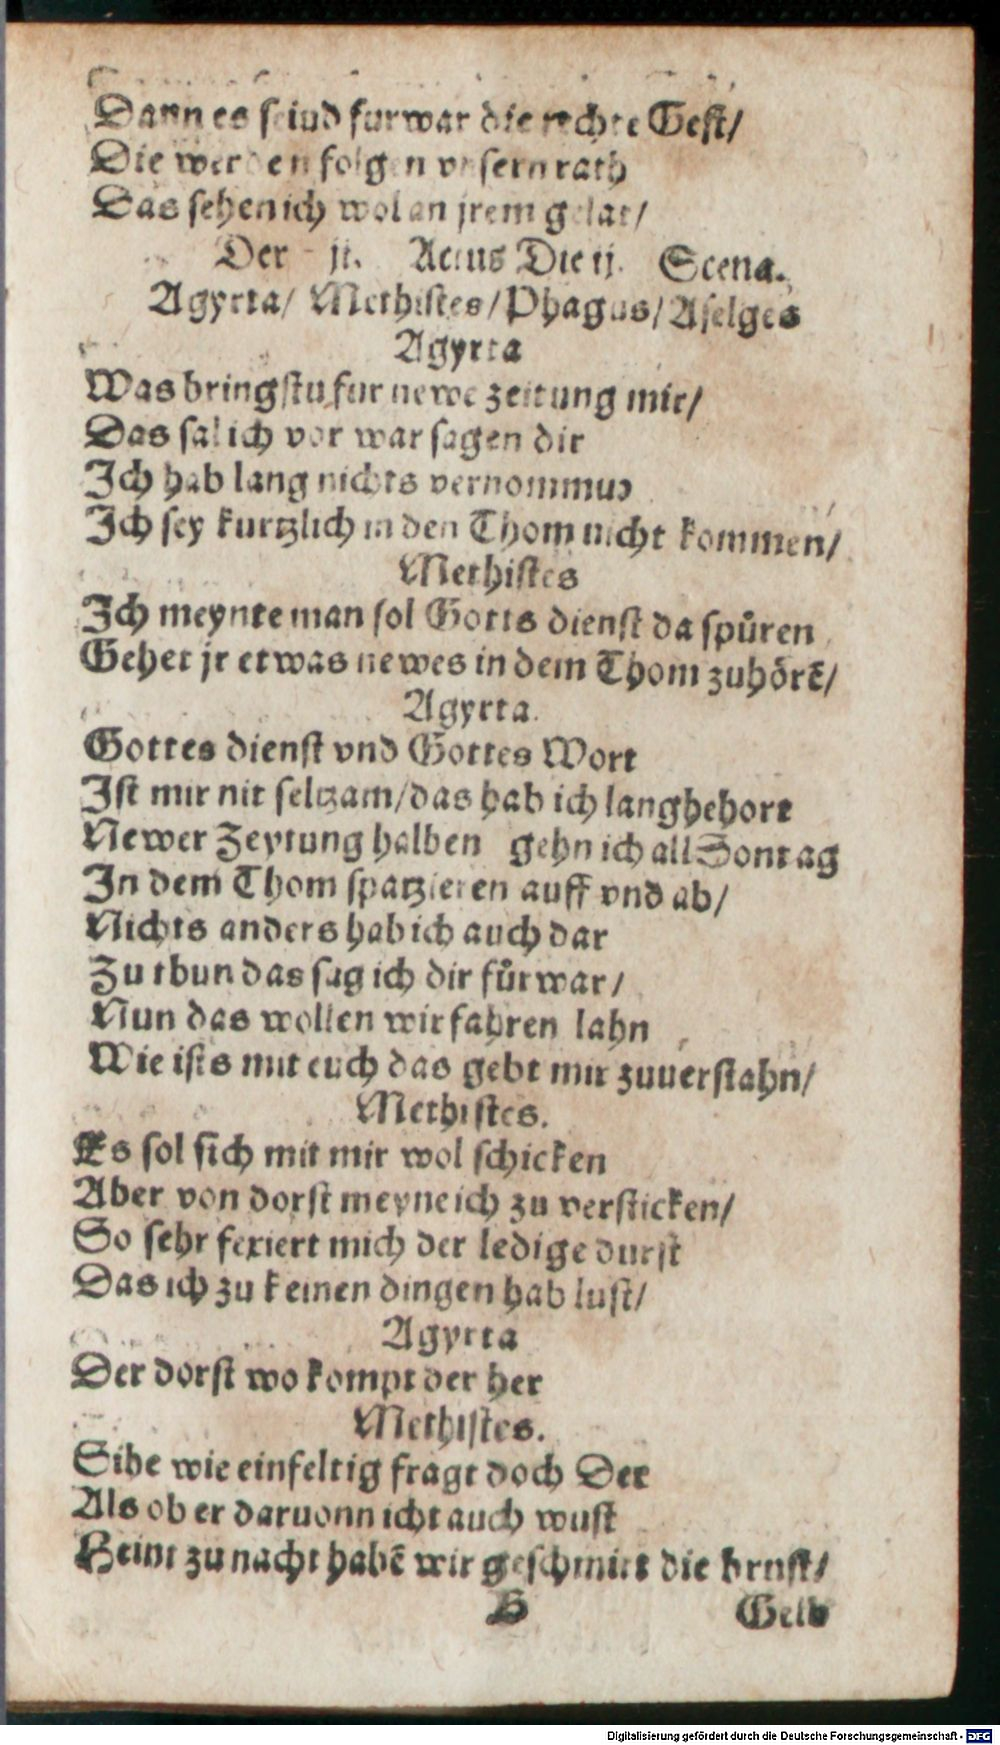 Dann es seind furwar die rechte Gest/
Die werden folgen vnsern rath
Das sehen ich wol an jrem gelat/
Der ij. Actus Die ij. Scena.
Agyrta/ Methistes/ Phagus/ Aselges
Agyrta
Was bringstu fur newe zeitung mir/
Das sal ich vor war sagen dir
Ich hab lang nichts vernommuɔ
Ich sey kurtzlich in den Thom nicht kommen/
Methistes
Ich meynte man sol Gotts dienst da spůren
Gehet jr etwas newes in dem Thom zuhörẽ/
Agyrta.
Gottes dienst vnd Gottes Wort
Ist mir nit seltzam/ das hab ich lang hehort
Newer Zeytung halben gehn ich all Sontag
In dem Thom spatzieren auff vnd ab/
Nichts anders hab ich auch dar
Zu thun das sag ich dir fůrwar/
Nun das wollen wir fahren lahn
Wie ists mit euch das gebt mir zuuerstahn/
Methistes.
Es sol sich mit mir wol schicken
Aber von dorst meyne ich zu versticken/
So sehr fexiert mich der ledige durst
Das ich zu keinen dingen hab lust/
Agyrta
Der dorst wo kompt der her
Methistes.
Sihe wie einfeltig fragt doch Der
Als ob er daruon nicht auch wust
Heint zu nacht habẽ wir geschmirt die brust/
H Gelb
Digitalisierung gefördert durch die Deutsche Forschungsgemeinschaft - DFG